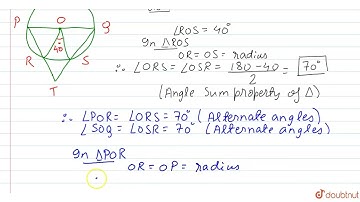 P O Q
40°
R S
T
∠ROS = 40°
In △ROS
OR = OS = radius
∴ ∠ORS = ∠OSR = 180-40 / 2 = 70°
(Angle Sum property of △)
∴ ∠POR = ∠ORS = 70° (Alternate angles)
∠SOQ = ∠OSR = 70° (Alternate angles)
In △POR
OR = OP = radius
doubtnut